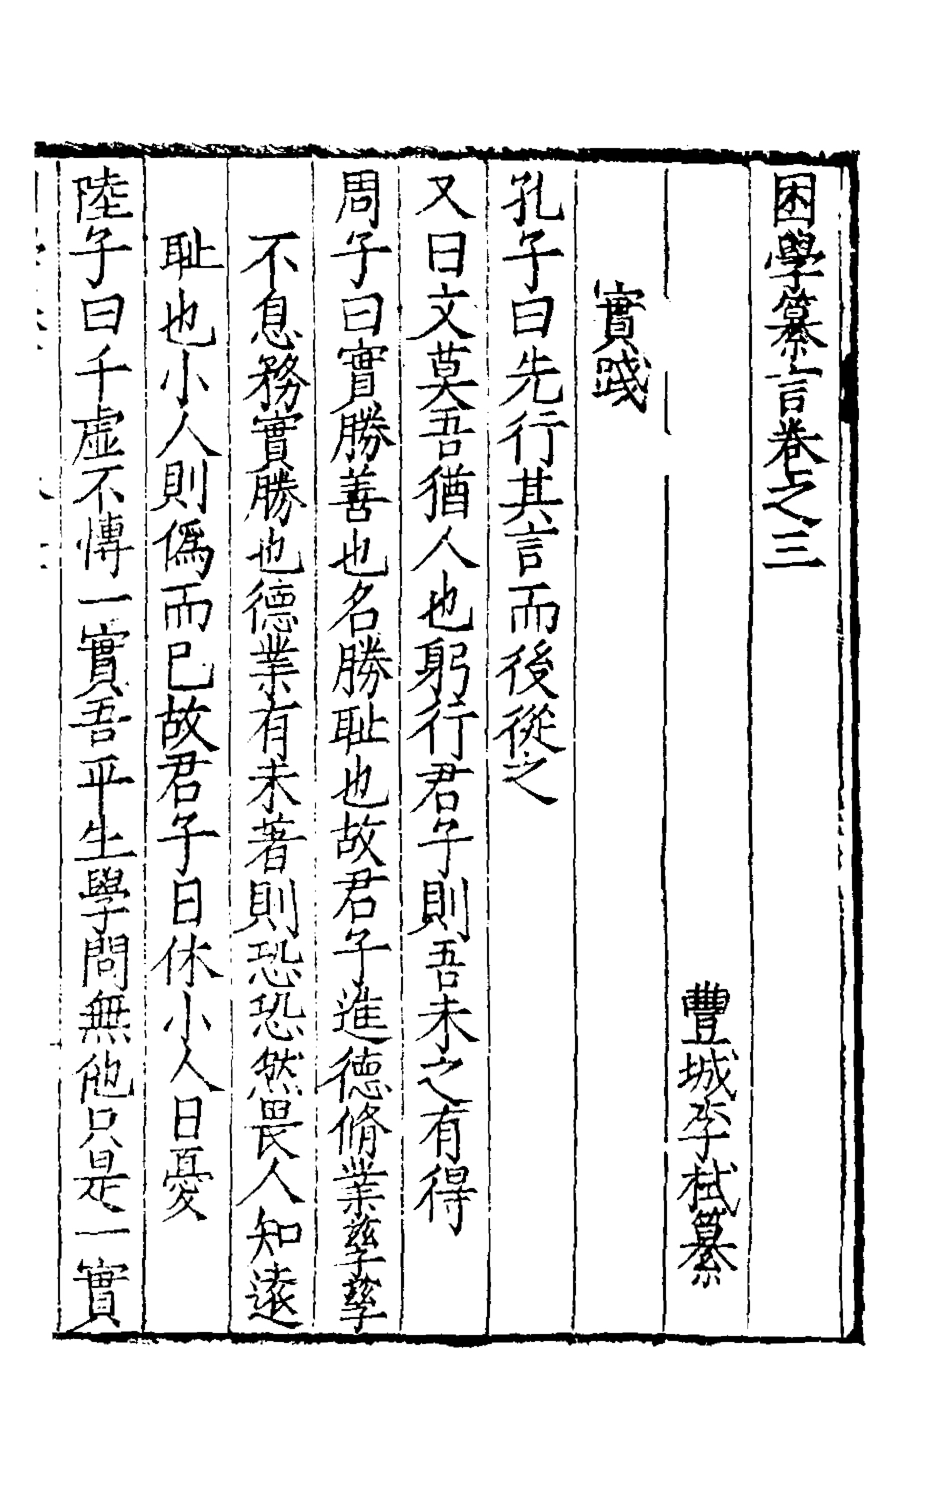 困學纂言卷之三
豐城李栻纂
實踐
孔子曰先行其言而後從之
又曰文莫吾猶人也躬行君子則吾未之有得
周子曰實勝善也名勝耻也故君子進德脩業孳孳
不息務實勝也德業有未著則恐恐然畏人知遠
耻也小人則僞而已故君子日休小人日憂
陸子曰千虛不愽一實吾平生學問無他只是一實